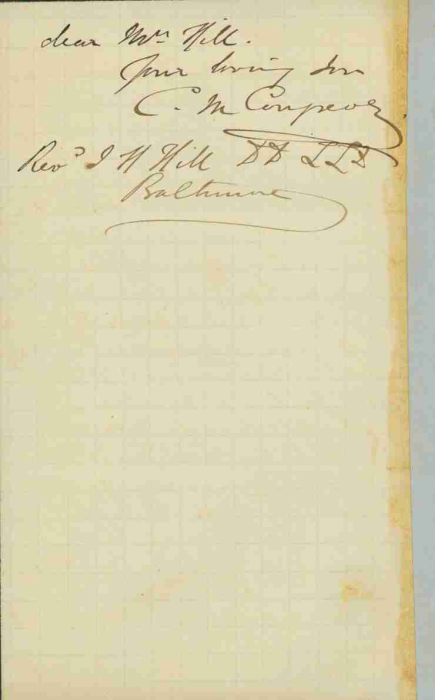 dear Mrs Hill.
Your loving Son
C. M
Revd J H Hill DD LLD
Baltimore